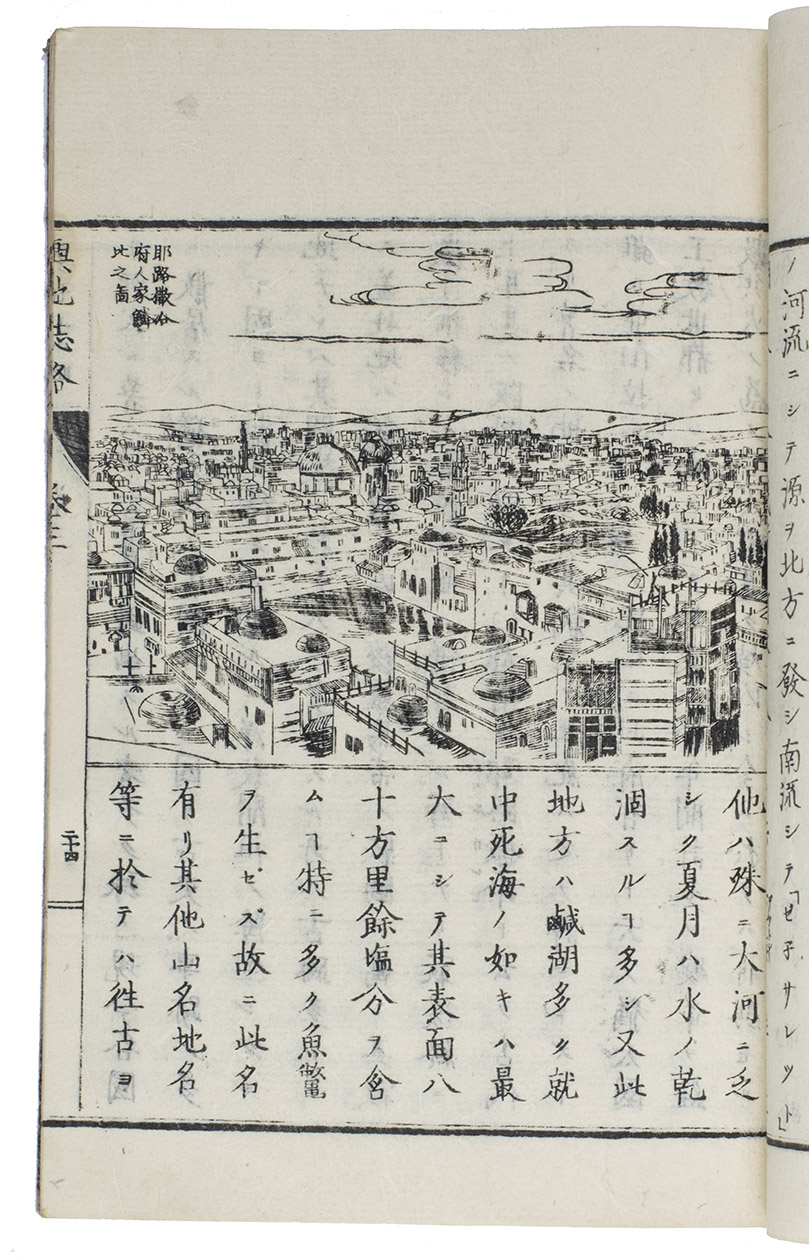 ノ河流ニシテ源ヲ北方ニ發シ南流シテ「ゼ子サレット」
耶路撒冷
府人家鱗
此之啚
他ハ殊ニ大河ニ乏
シク夏月ハ水ノ乾
涸スルヿ多シ又此
地方ハ鹹湖多ク就
中死海ノ如キハ最
大ニシテ其表面八
十方里餘塩分ヲ含
ムヿ特ニ多ク魚鼈
ヲ生ゼズ故ニ此名
有リ其他山名地名
等ニ於テハ徃古ヨ
輿地志略
卷三
二十四